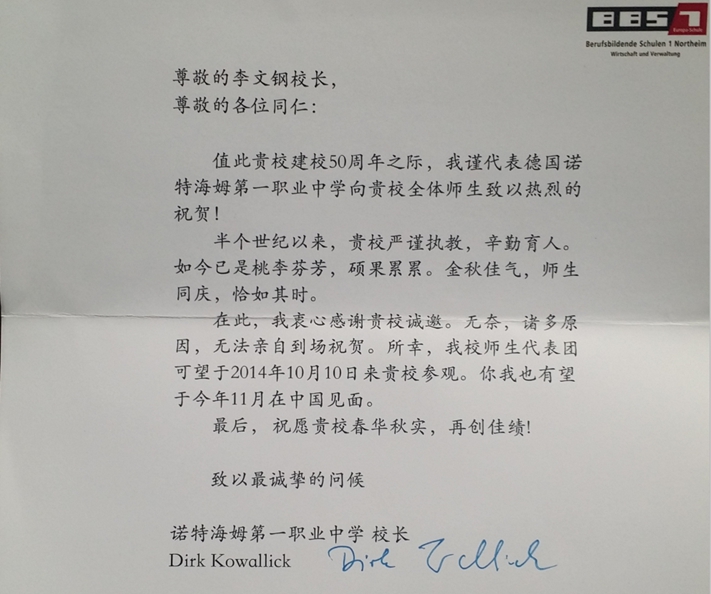 BBS 1
Europa Schule
Berufsbildende Schulen 1 Northeim
Wirtschaft und Verwaltung
尊敬的李文钢校长，
尊敬的各位同仁：
值此贵校建校50周年之际，我谨代表德国诺
特海姆第一职业中学向贵校全体师生致以热烈的
祝贺！
半个世纪以来，贵校严谨执教，辛勤育人。
如今已是桃李芬芳，硕果累累。金秋佳气，师生
同庆，恰如其时。
在此，我衷心感谢贵校诚邀。无奈，诸多原
因，无法亲自到场祝贺。所幸，我校师生代表团
可望于2014年10月10日来贵校参观。你我也有望
于今年11月在中国见面。
最后， 祝愿贵校春华秋实，再创佳绩!
致以最诚挚的问候
诺特海姆第一职业中学 校长
Dirk Kowallick Dirk Kowallick